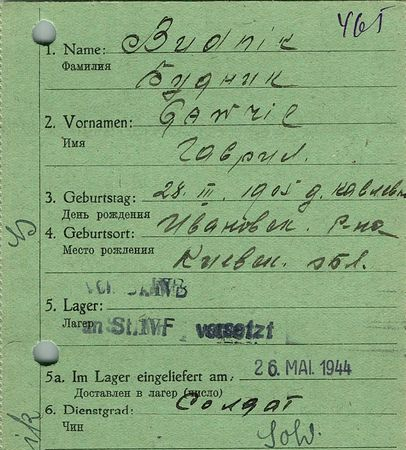 461
1. Name: Budnik
Фамилия Будник
2. Vornamen: Gawril
Имя Гаврил.
3. Geburtstag: 28. III. 1905 д.
День рождения
4. Geburtsort: Ивановск. р-на
Место рождения Киевск. обл.
5. Lager: IVB
Лагер an St.IVF versetzt
5a. Im Lager eingeliefert am: 26. MAI. 1944
Доставлен в лагер (число)
6. Dienstgrad: Солдат
Чин Sold.